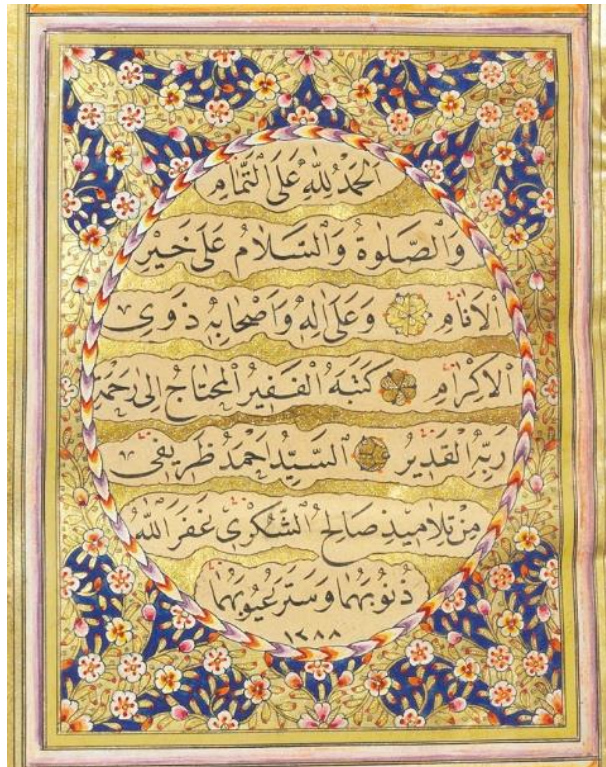 اَلْحَمْدُ لِلّٰهِ عَلَى التَّمَامِ
وَالصَّلٰوةُ وَالسَّلَامُ عَلٰى خَيْرِ
الْاَنَامِ وَعَلٰى اٰلِهٖ وَاَصْحَابِهٖ ذَوِى
الْاَكْرَامِ كَتَبَهُ الْفَقِيرُ الْمُحْتَاجُ اِلٰى رَحْمَةِ
رَبِّهِ الْقَدِيرِ السَّيِّدُ اَحْمَدُ ظَرِيفِى
مِنْ تَلَامِيذِ صَالِحُ الشُّكْرِى غَفَرَ اللّٰهُ
ذُنُوبَهُمَا وَسَتَرَ عُيُوبَهُمَا
١٢٨٨